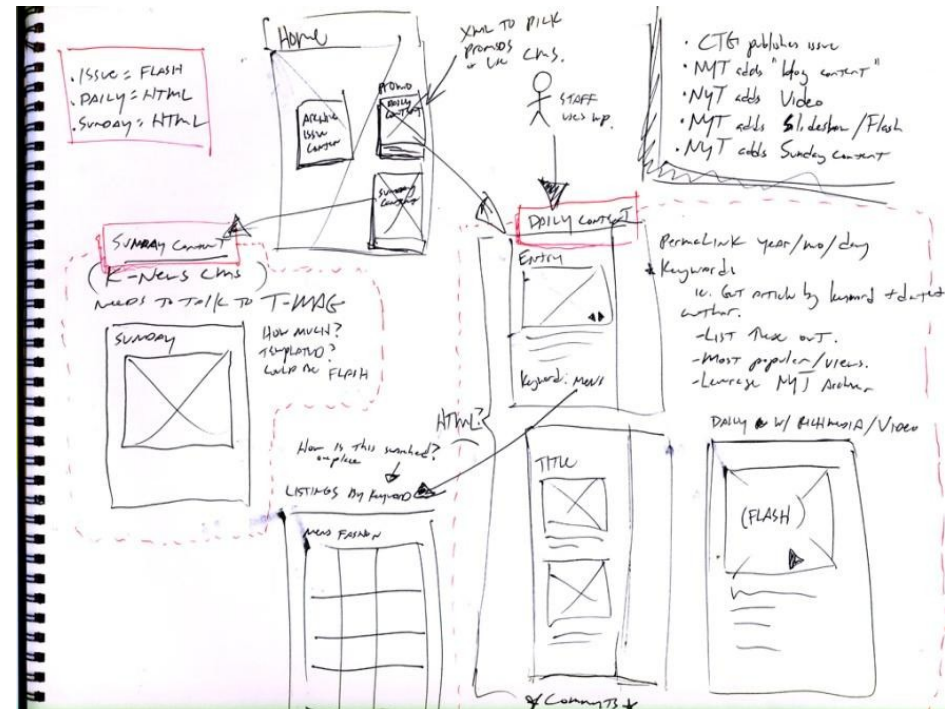 • ISSUE = FLASH
• DAILY = HTML
• SUNDAY = HTML
Home
ARCHIVE
ISSUE
CONTENT
PROMO
DAILY
CONTENT
SUNDAY
CONTENT
XML TO PICK
PROMOS
or use CMS.
STAFF
uses wp.
• CTG publishes issue
• NYT adds "blog content"
• NYT adds Video
• NYT adds Slideshow/Flash
• NYT adds Sunday content
SUNDAY CONTENT
(K-News CMS)
NEEDS TO TALK TO T-MAG
SUNDAY
HOW MUCH?
TEMPLATED?
COULD BE FLASH
DAILY CONTENT
ENTRY
Keyword: MENS
HTML?
PermaLink year/mo/day
* Keywords
ie. Get article by keyword + date +
author.
- LIST THESE OUT.
- Most popular/views.
- Leverage NYT Archive
How is this searched?
LISTINGS By Keyword
MENS FASHION
TITLE
DAILY W/ RICHMEDIA/VIDEO
(FLASH)
* COMMENTS *